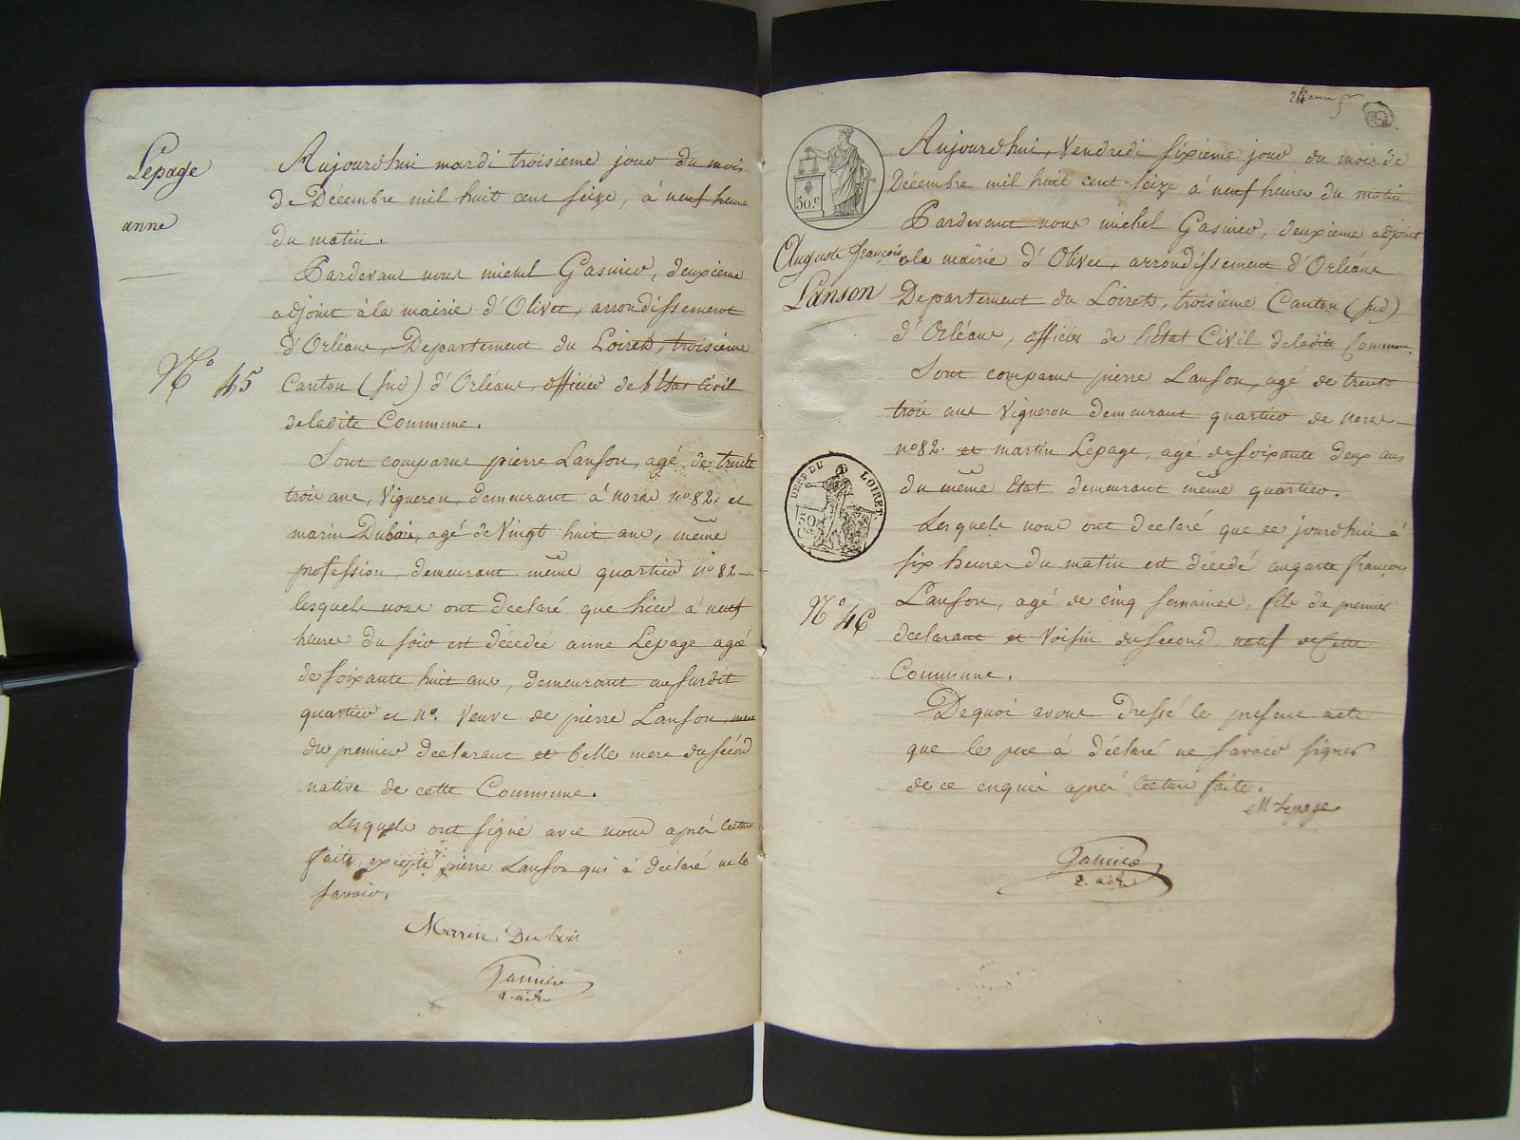 Lepage
anne
N.o 45
Aujourdhui mardi troisieme jour du mois
de Décembre mil huit cent seize, à neuf heure
du matin.
Pardevant nous michel Gasnier, deuxieme
adjoint à la mairie d'Olivet, arrondissement
d'Orléans, Departement du Loiret, troisieme
Canton (sud) d'Orléans, officier de l'Etat Civil
deladite Commune.
Sont comparus pierre Lanson, agé de trente
trois ans, Vigneron, demeurant à noras no 82. et
marin Dubois, agé de Vingt huit ans, même
profession demeurant même quartier no 82
lesquels nous ont declaré que hier à neuf
heures du soir est décédée anne Lepage agé
de soixante huit ans, demeurant au susdit
quartier et no. Veuve de pierre Lanson mere
du premier declarant et belle mere du second
native de cette Commune.
Lesquels ont signé avec nous après lecture
faite, excepté pierre Lanson qui à déclaré ne le
savoir.
Marin Dubois
Gasnier
2. adj.
DEPT DU LOIRET
50 C
Auguste françois
Lanson
N.o 46
Aujourdhui, Vendredi sixieme jour du mois de
Décembre mil huit cent seize à neuf heures du matin
Pardevant nous michel Gasnier, deuxieme adjoint
a la mairie d'Olivet, arrondissement d'Orléans
Departement du Loiret, troisieme Canton (sud)
d'Orléans, officier de l'Etat Civil deladite Commune.
Sont comparus pierre Lanson, agé de trente
trois ans Vigneron demeurant quartier de noras
no 82. et martin Lepage, agé de soixante deux ans
du même Etat demeurant même quartier.
Lesquels nous ont declaré que ce jourdhui à
six heures du matin est décédé auguste françois
Lanson, agé de cinq semaines, fils du premier
declarant et Voisin du second, natif de cette
Commune.
Dequoi avons dressé le present acte
que le pere à déclaré ne savoir signer
de ce enquis après lecture faite.
M Lepage
Gasnier
2. adj.